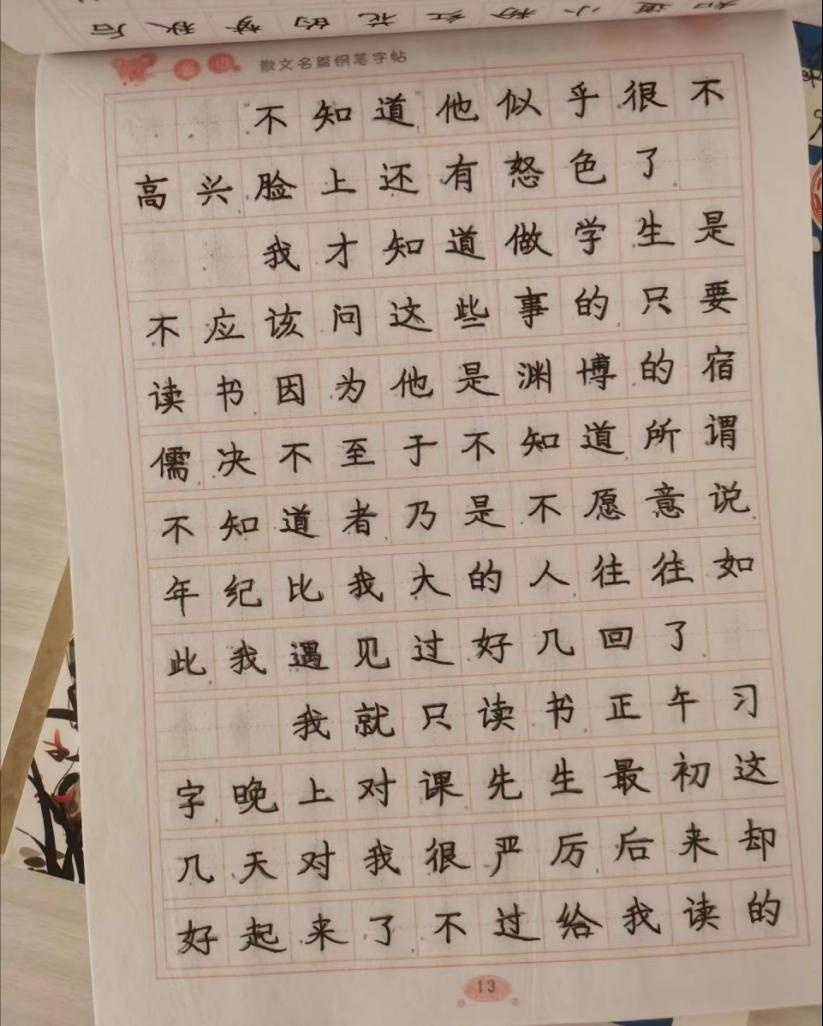 知道小粉红花的梦秋后
散文名篇钢笔字帖
不知道他似乎很不
高兴脸上还有怒色了
我才知道做学生是
不应该问这些事的只要
读书因为他是渊博的宿
儒决不至于不知道所谓
不知道者乃是不愿意说
年纪比我大的人往往如
此我遇见过好几回了
我就只读书正午习
字晚上对课先生最初这
几天对我很严厉后来却
好起来了不过给我读的
13